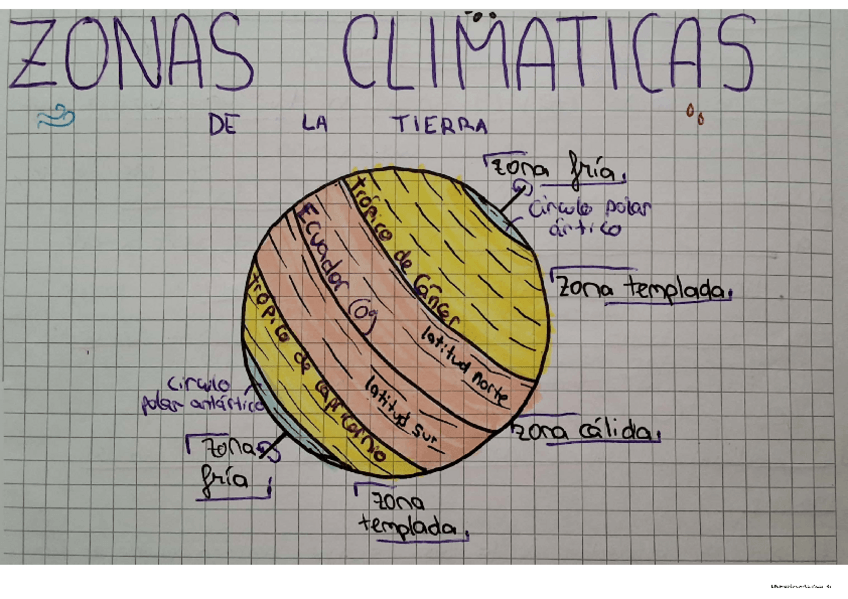 ZONAS CLIMATICAS
DE LA TIERRA
zona fría.
círculo polar
ártico
trópico de Cáncer
Ecuador (0º)
zona templada.
latitud norte
trópico de capricornio
latitud sur
círculo
polar antártico
zona cálida.
zona
fría
zona
templada.